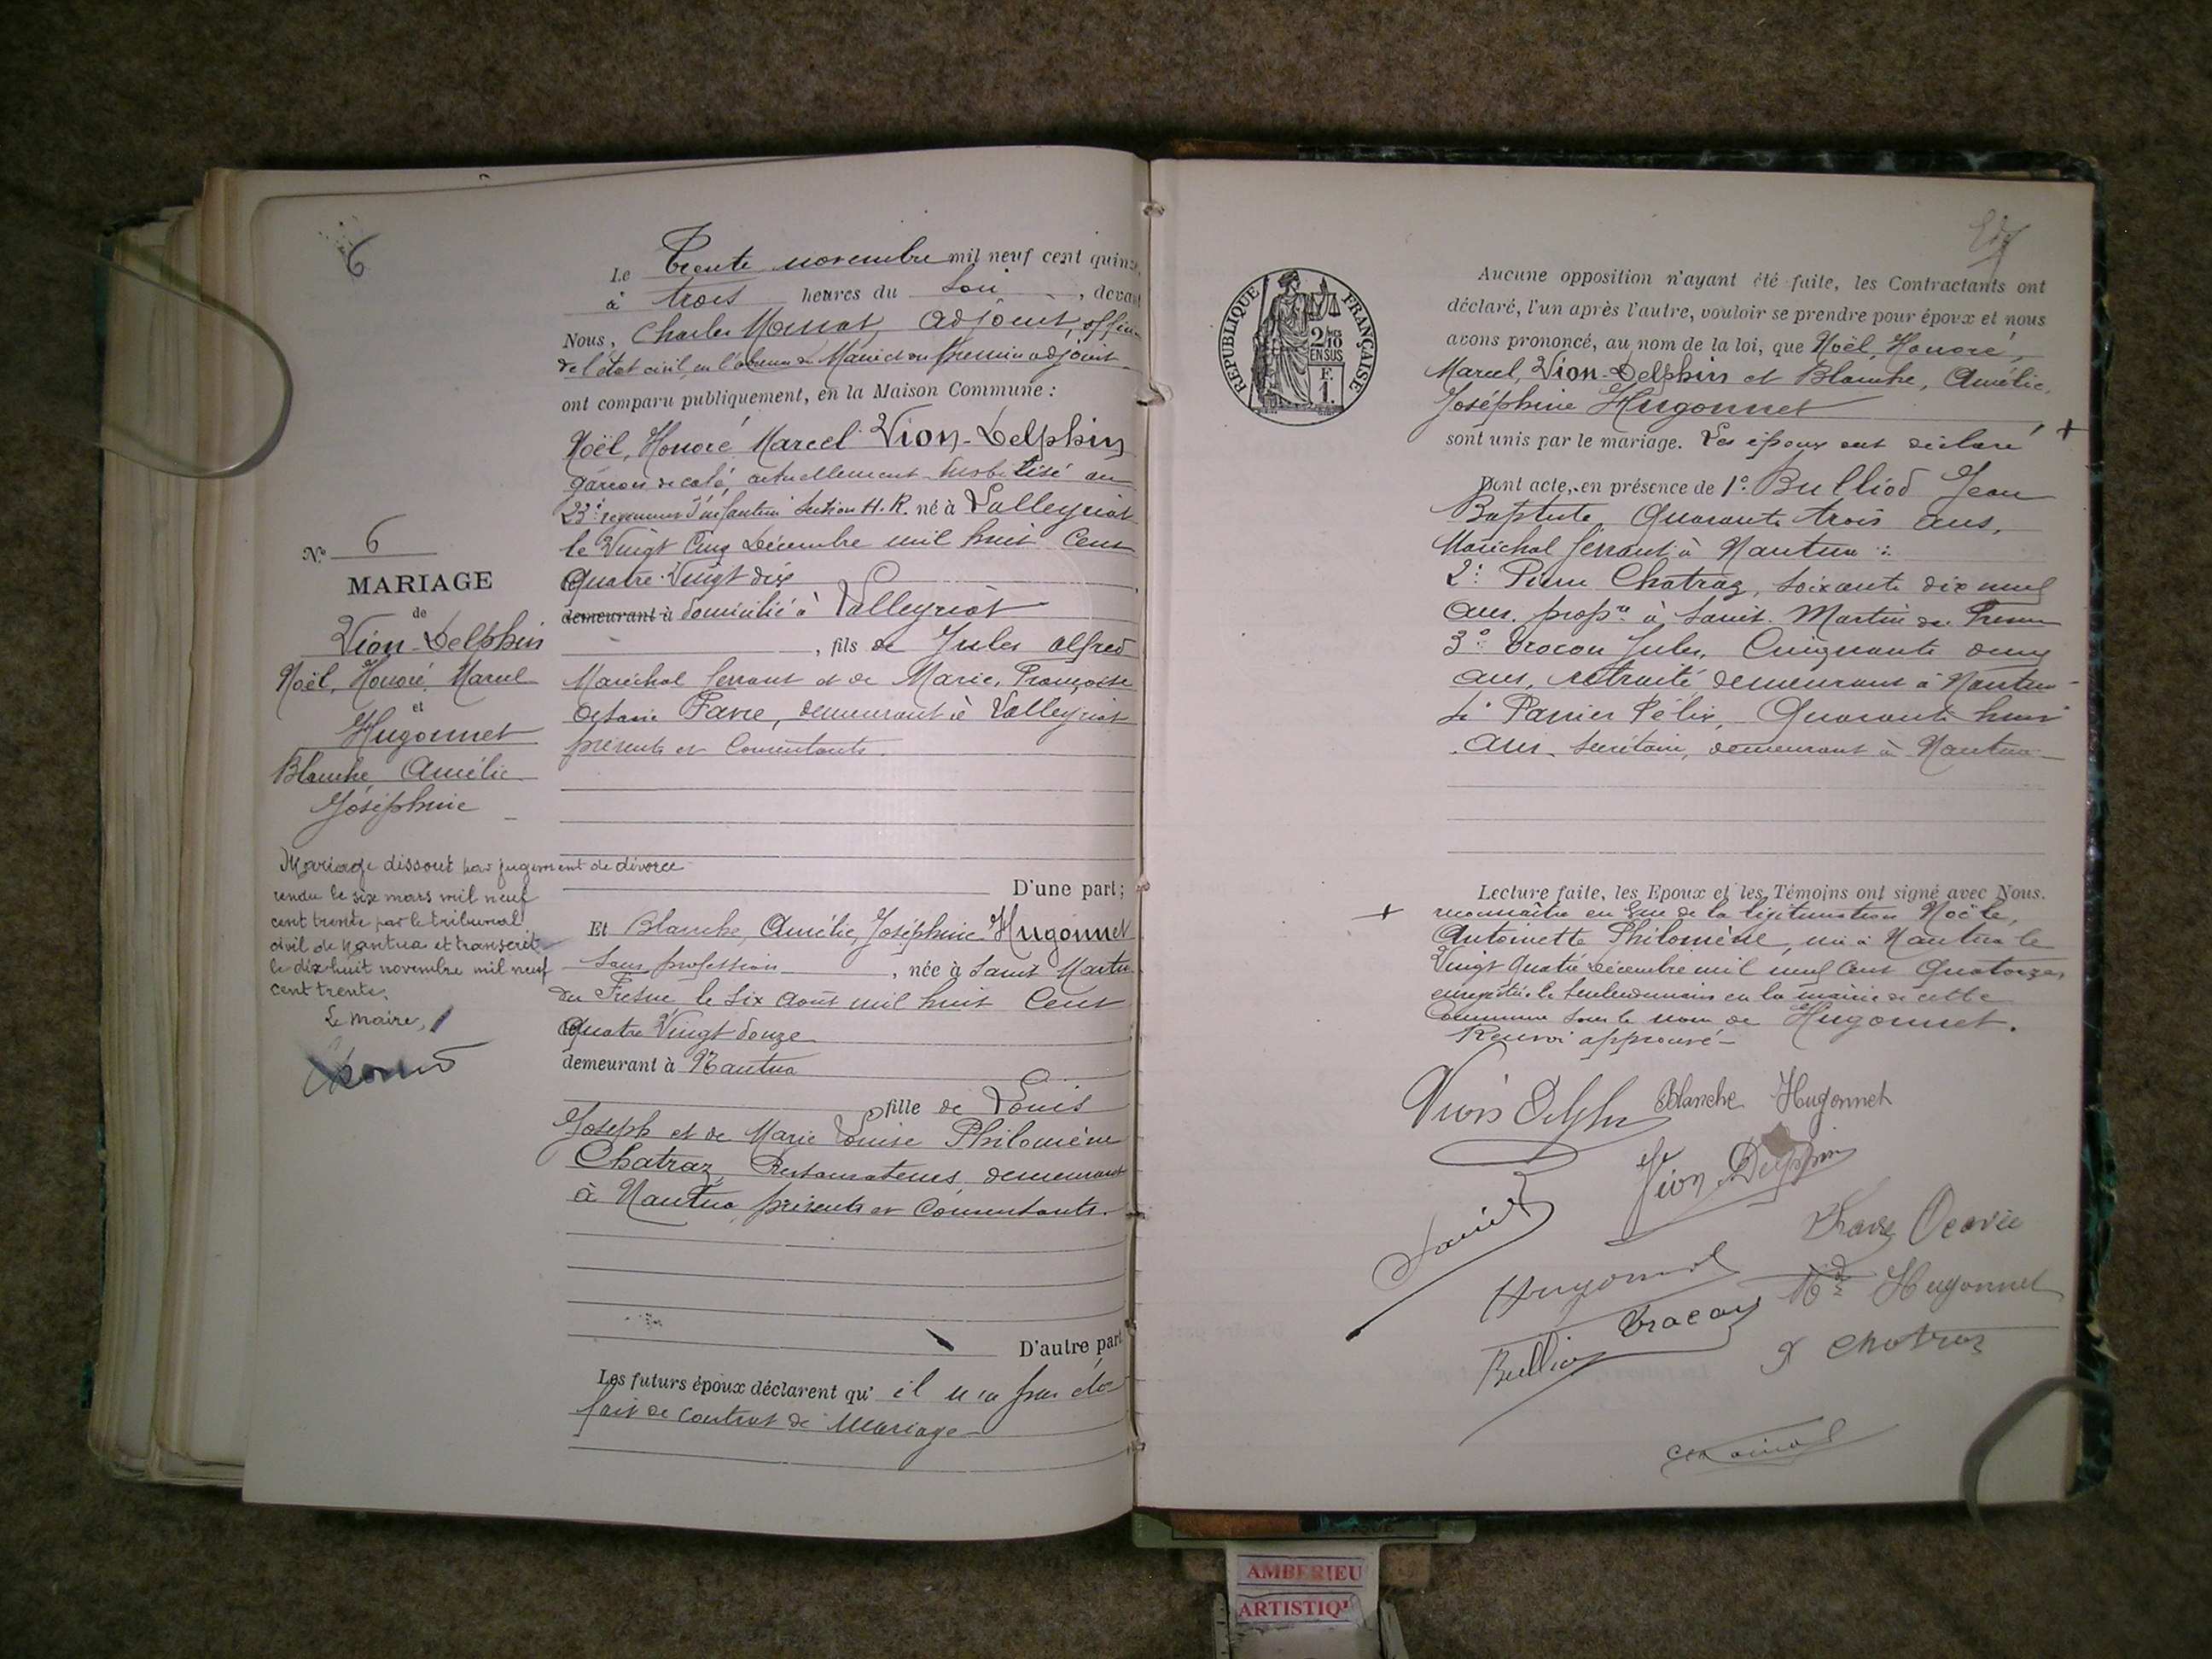 6
Le Trente novembre mil neuf cent quinze,
à trois heures du soir, devant
Nous, Charles adjoint, officier
de l'état civil, en l'absence du Maire et du premier adjoint
ont comparu publiquement, en la Maison Commune :
Noël, Honoré Marcel Vion-Delphin
garçon de café, actuellement mobilisé au
23e régiment d'infanterie Section H.R. né à Lalleyriat
le Vingt Cinq Décembre mil huit Cent
Quatre Vingt dix
demeurant à domicilié à Lalleyriat
, fils de Jules Alfred
Maréchal ferrant et de Marie, Françoise
Octavie Favre, demeurant à Lalleyriat
présents et Consentants.
D'une part;
Et Blanche, Amélie, Joséphine Hugonnet
Sans profession, née à Saint Martin
du Fresne le Six Août mil huit Cent
Quatre Vingt douze
demeurant à Nantua
fille de Louis
Joseph et de Marie Louise Philomène
Chatraz, Restaurateurs, demeurant
à Nantua, présents et Consentants.
D'autre part
Les futurs époux déclarent qu'il n'a pas été
fait de contrat de Mariage
No 6
MARIAGE
de
Vion-Delphin
Noël, Honoré, Marcel
et
Hugonnet
Blanche Amélie
Joséphine
Mariage dissout par jugement de divorce
rendu le six mars mil neuf
cent trente par le tribunal
civil de Nantua et transcrit
le dix-huit novembre mil neuf
cent trente.
Le Maire,
RÉPUBLIQUE FRANÇAISE
2/10
EN SUS
F.
1.
Aucune opposition n'ayant été faite, les Contractants ont
déclaré, l'un après l'autre, vouloir se prendre pour époux et nous
avons prononcé, au nom de la loi, que Noël, Honoré,
Marcel, Vion-Delphin et Blanche, Amélie,
Joséphine Hugonnet
sont unis par le mariage. Les époux ont déclaré +
Dont acte, en présence de 1° Bulliod Jean
Baptiste Quarante trois ans,
Maréchal ferrant à Nantua :
2° Pierre Chatraz, soixante dix neuf
ans, propre à Saint. Martin du Fresne
3° Jules, Cinquante deux
ans, retraité demeurant à Nantua
4° Félix, Quarante huit
ans, Secrétaire, demeurant à Nantua
Lecture faite, les Epoux et les Témoins ont signé avec Nous.
+ reconnaître en vue de la légitimation Noële,
Antoinette Philomène, née à Nantua le
Vingt Quatre Décembre mil neuf Cent Quatorze,
enregistrée le lendemain en la mairie de cette
Commune sous le nom de Hugonnet.
Renvoi approuvé
Vion Delphin Blanche Hugonnet
Vion Delphin
Hugonnet
Mde Hugonnet
Bulliod
P Chatraz
AMBERIEU
ARTISTIQ